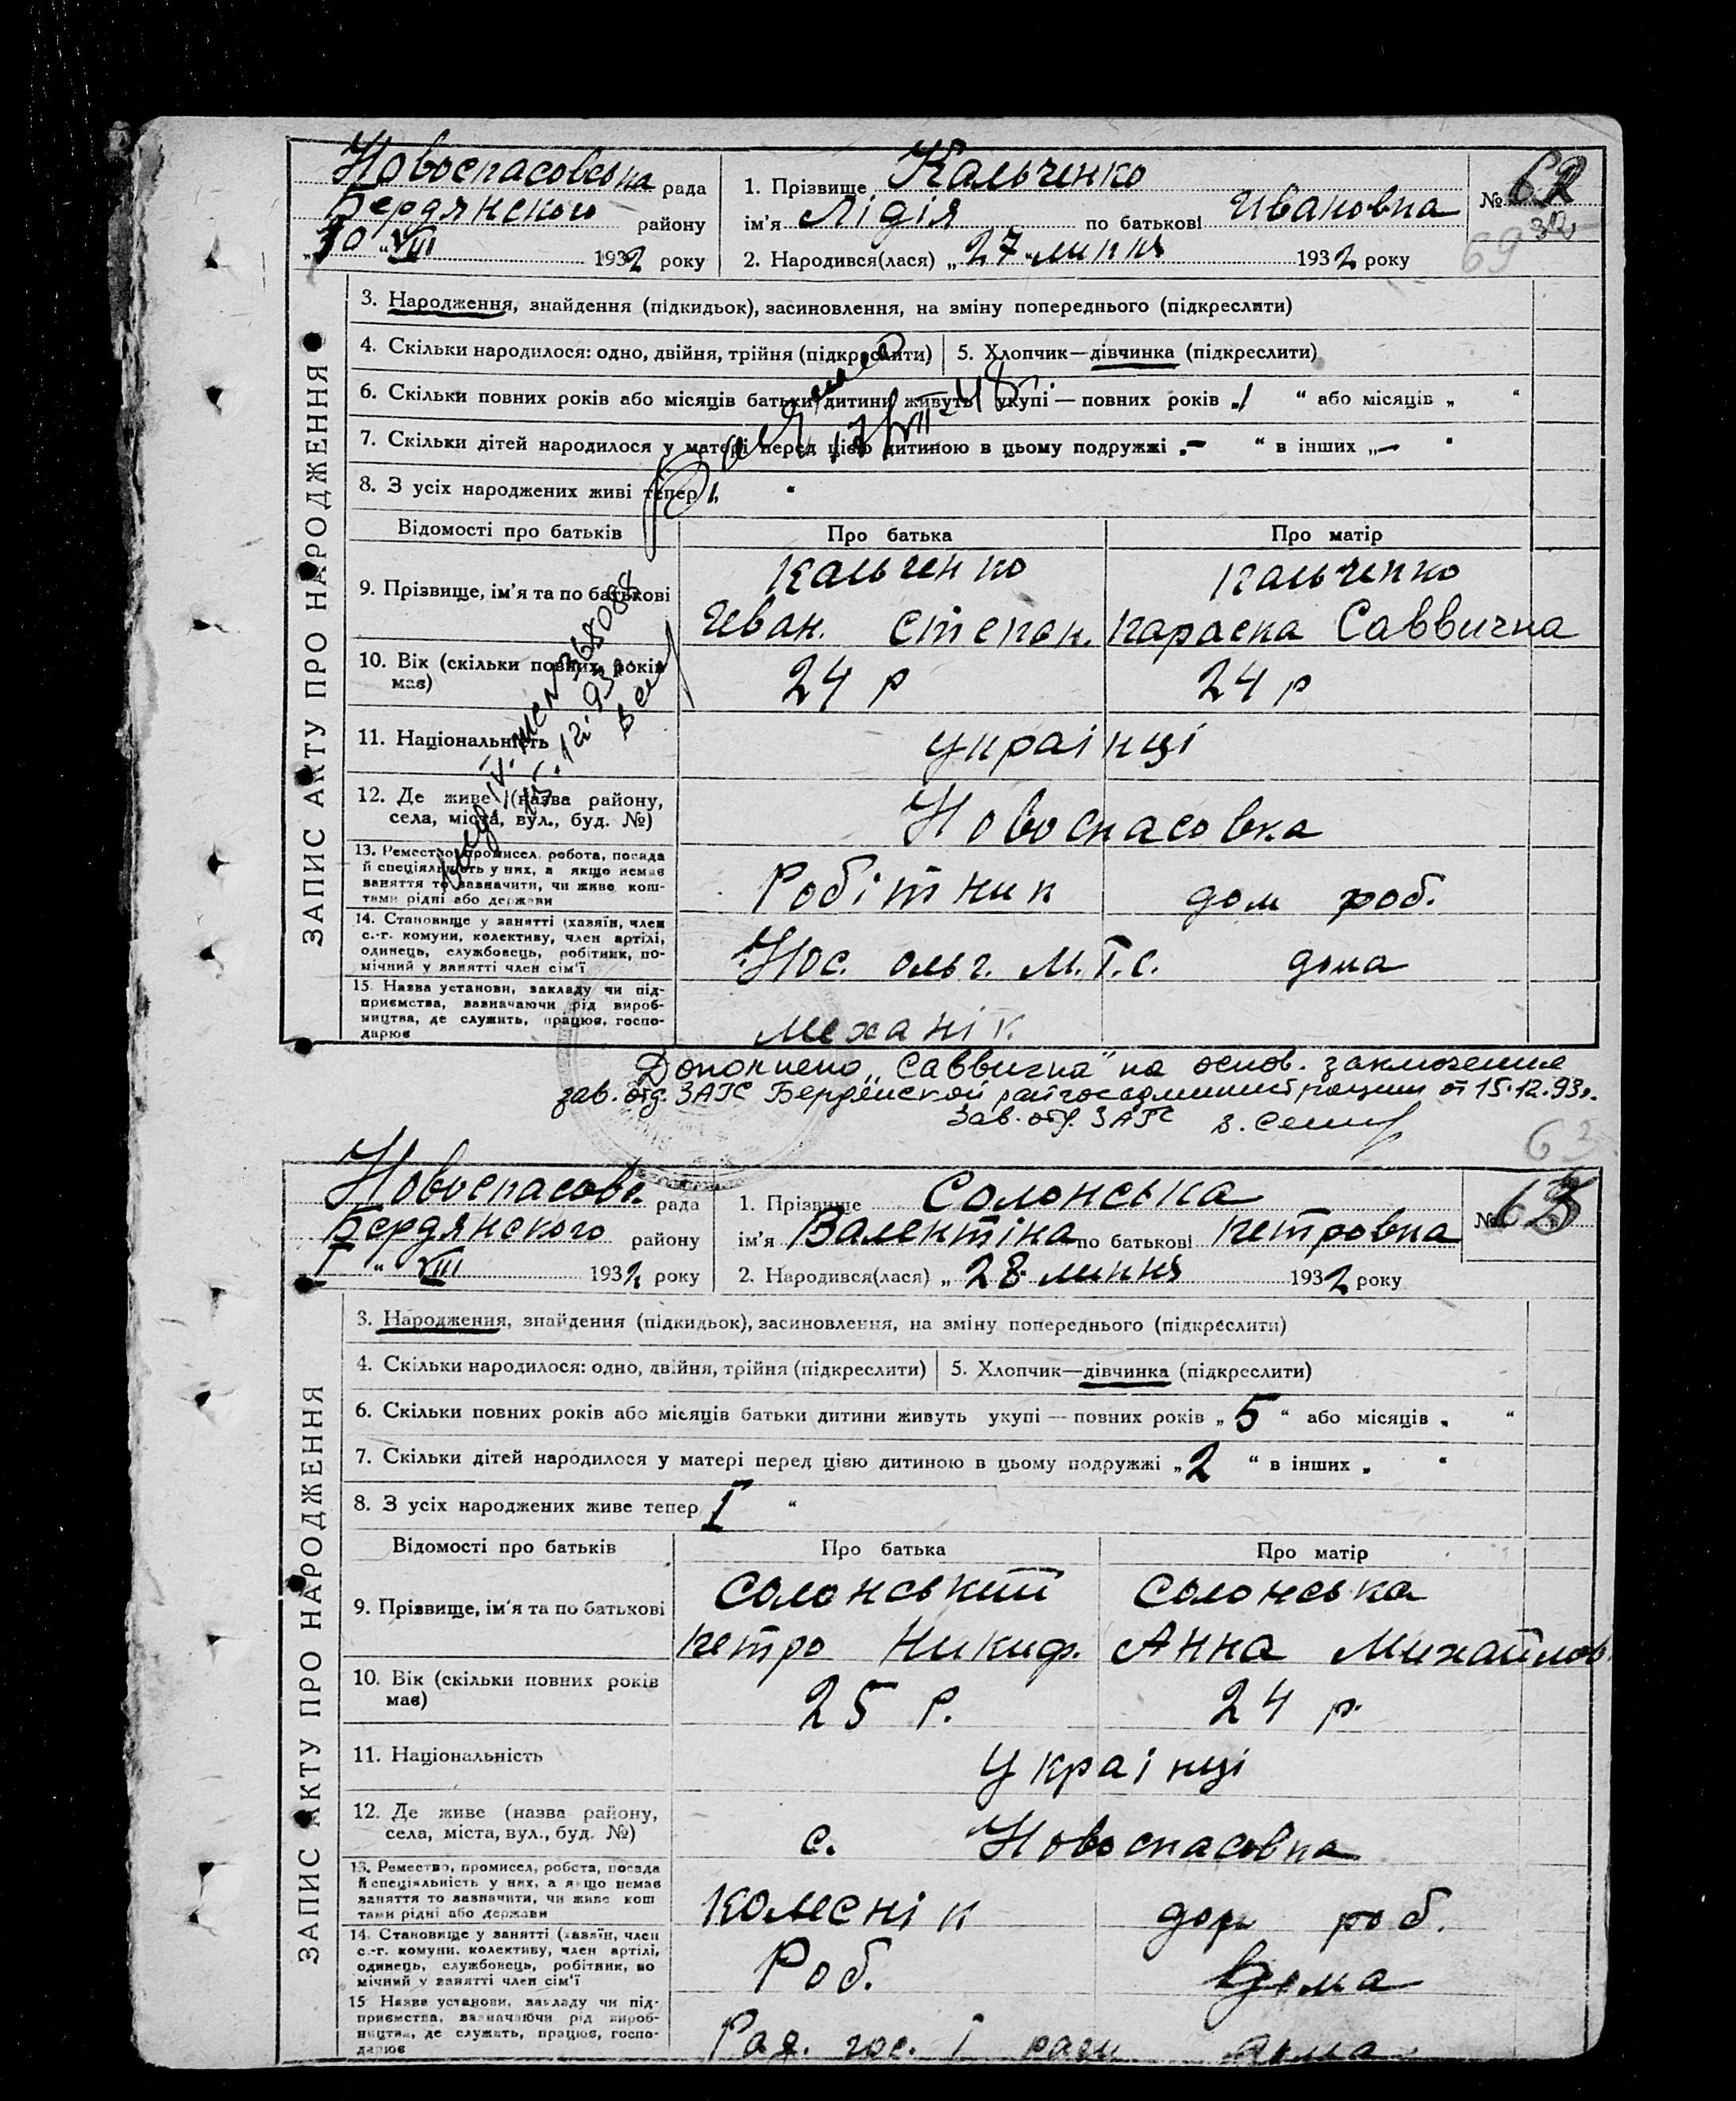 ЗАПИС АКТУ ПРО НАРОДЖЕННЯ
Новоспасовська рада
Бердянского району
VIII 1932 року
1. Прізвище Кальченко
ім'я Лідія по батькові Ивановна
2. Народився(лася) „27" липня 1932 року
№ 62
69
3. Народження, знайдення (підкидьок), засиновлення, на зміну попереднього (підкреслити)
4. Скільки народилося: одно, двійня, трійня (підкреслити) 5. Хлопчик—дівчинка (підкреслити)
6. Скільки повних років або місяців батьки дитини живуть укупі — повних років „1 " або місяців „ "
7. Скільки дітей народилося у матері перед цією дитиною в цьому подружжі „— " в інших „— "
8. З усіх народжених живі тепер 1 "
Відомості про батьків Про батька Про матір
9. Прізвище, ім'я та по батькові Кальченко Кальченко
Иван. Степан. Параска Саввична
10. Вік (скільки повних років має) 24 р 24 р
11. Національність українці
12. Де живе (назва району, села, міста, вул., буд. №) Новоспасовка
13. Ремество, промисел, робота, посада
й спеціяльність у них, а якщо немає
заняття то зазначити, чи живе кош-
тами рідні або держави
Робітник дом роб.
14. Становище у занятті (хазяїн, член
с.-г. комуни, колективу, член артілі,
одинець, службовець, робітник, по-
мічний у занятті член сім'ї
М.Т.С. дома
15. Назва установи, закладу чи під-
приємства, зазначаючи рід вироб-
ництва, де служить, працює, госпо-
дарює
Механік
368088
15.12.93
Дополнено „Саввична" на основ. заключения
зав. отд. ЗАГС Бердянской райгосадминистрации от 15.12.93г.
Зав. отд. ЗАГС
63
ЗАПИС АКТУ ПРО НАРОДЖЕННЯ
Новоспасовс. рада
Бердянского району
1 " VIII 1932 року
1. Прізвище Солонська
ім'я Валентіна по батькові Петровна
2. Народився(лася) „28" липня 1932 року
№ 63
3. Народження, знайдення (підкидьок), засиновлення, на зміну попереднього (підкреслити)
4. Скільки народилося: одно, двійня, трійня (підкреслити) 5. Хлопчик—дівчинка (підкреслити)
6. Скільки повних років або місяців батьки дитини живуть укупі — повних років „5" або місяців „ "
7. Скільки дітей народилося у матері перед цією дитиною в цьому подружжі „2 " в інших „ "
8. З усіх народжених живе тепер 1 "
Відомості про батьків Про батька Про матір
9. Прізвище, ім'я та по батькові Солонський Солонська
Петро Никиф. Анна Михайлов.
10. Вік (скільки повних років має) 25 р. 24 р.
11. Національність українці
12. Де живе (назва району, села, міста, вул., буд. №) с. Новоспасовка
13. Ремество, промисел, робота, посада
й спеціяльність у них, а якщо немає
заняття то зазначити, чи живе кош
тами рідні або держави
Колеснік дом роб.
14. Становище у занятті (хазяїн, член
с.-г. комуни, колективу, член артілі,
одинець, службовець, робітник, по
мічний у занятті член сім'ї
Роб. Дома
15 Назва установи, закладу чи під-
приємства, зазначаючи рід вироб-
ництва, де служить, працює, госпо-
дарює
Рад. гос. дома